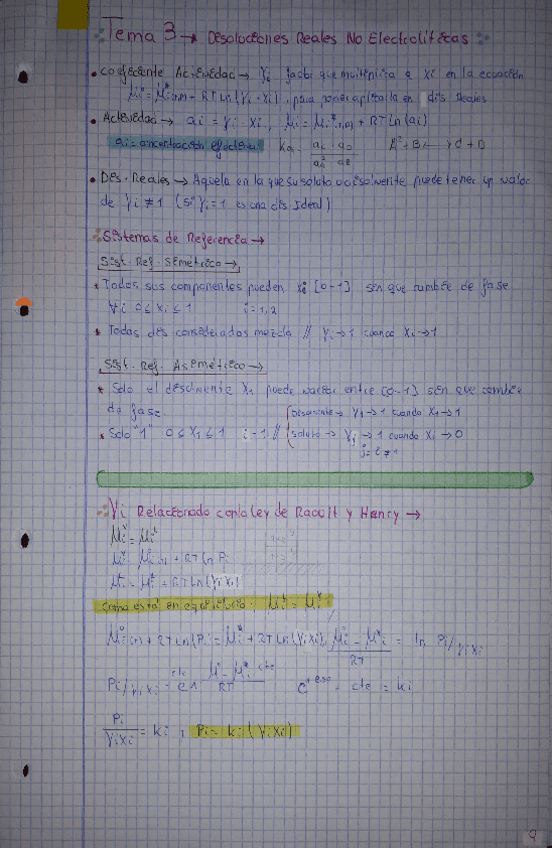 Tema 3 → Disoluciones Reales No Electrolíticas
• Coeficiente Actividad → γi factor que multiplica a xi en la ecuación
μi = μi*(l,0) + RT Ln(γi · xi), para poner aplicarla en dis reales
• Actividad → ai = γi · xi, μi = μi*(l,0) + RT Ln(ai)
ai = concentración efectiva Ka = ac · aD
• Dis. Reales → Aquella en la que su soluto o disolvente puede tener un valor
de γi ≠ 1 (si γi = 1 es una dis Ideal)
Sistemas de Referencia →
Sist. Ref. Simétrico →
* Todos sus componentes pueden xi [0-1] sin que cambie de fase
∀i 0 ≤ xi ≤ 1 i = 1,2
* Todos dis considerados mezcla // γi → 1 cuando xi → 1
Sist. Ref. Asimétrico →
* Solo el disolvente x1 puede variar entre [0-1] sin que cambie
de fase.
* Solo "1" 0 ≤ x1 ≤ 1 i = 1 //
Disolvente → γ1 → 1 cuando x1 → 1
soluto → γi → 1 cuando xi → 0
γi Relacionado con la ley de Raoult y Henry →
Como está en equilibrio: μiL = μiV
Pi/γixi = cte
cte = ki
Pi/γixi = ki, Pi = ki (γixi)
9